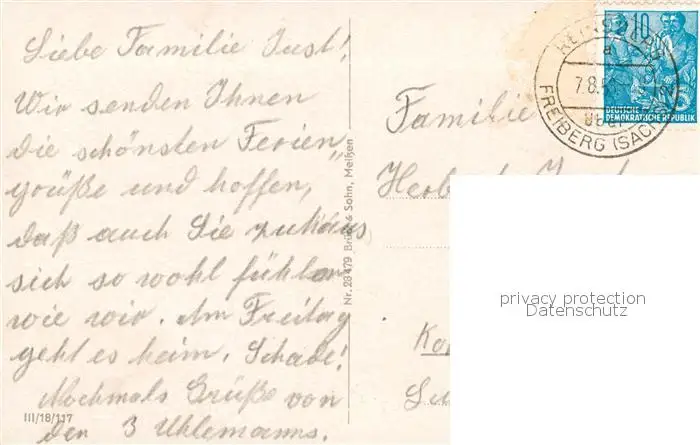 Liebe Familie Just!
Wir senden Ihnen
die schönsten Ferien"
grüße und hoffen,
daß auch Sie zuhaus
sich so wohl fühlen
wie wir. Am Freitag
geht es heim. Schade!
Nochmals Grüße von
den 3 Uhlemanns.
III/18/117
Nr. 28479 Brück & Sohn, Meißen
Familie
10
DEUTSCHE
DEMOKRATISCHE REPUBLIK
a
7.8.5
über
FREIBERG (SACHS)
privacy protection
Datenschutz